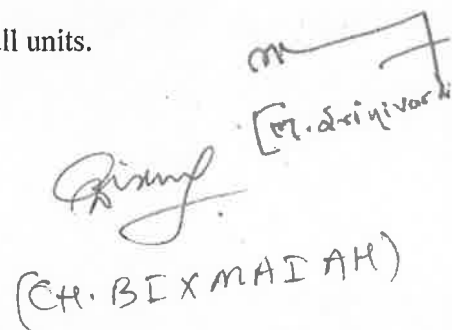 all units.
[M. Srinivas
(CH. BIXMAIAH)